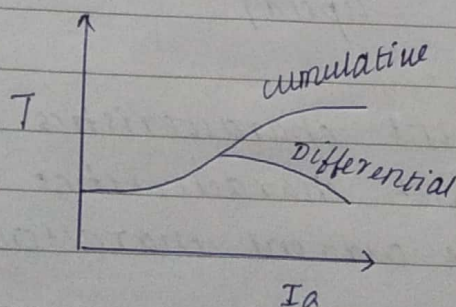 cumulative
T
Differential
Ia